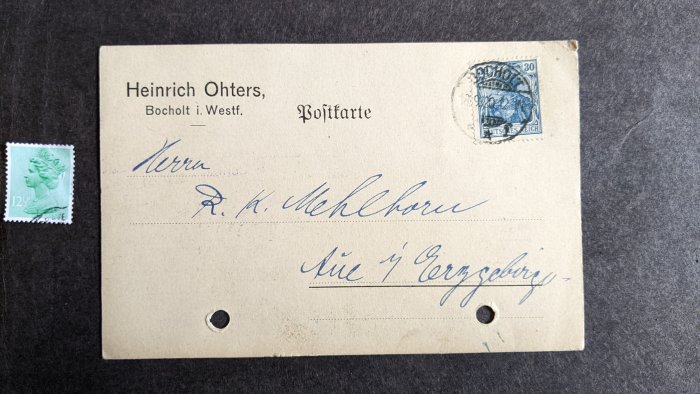 Heinrich Ohters,
Bocholt i. Westf.
Postkarte
30
BOCHOLT
Herrn
R. K. Mehlhorn
Aue i/ Erzgebirge
12½